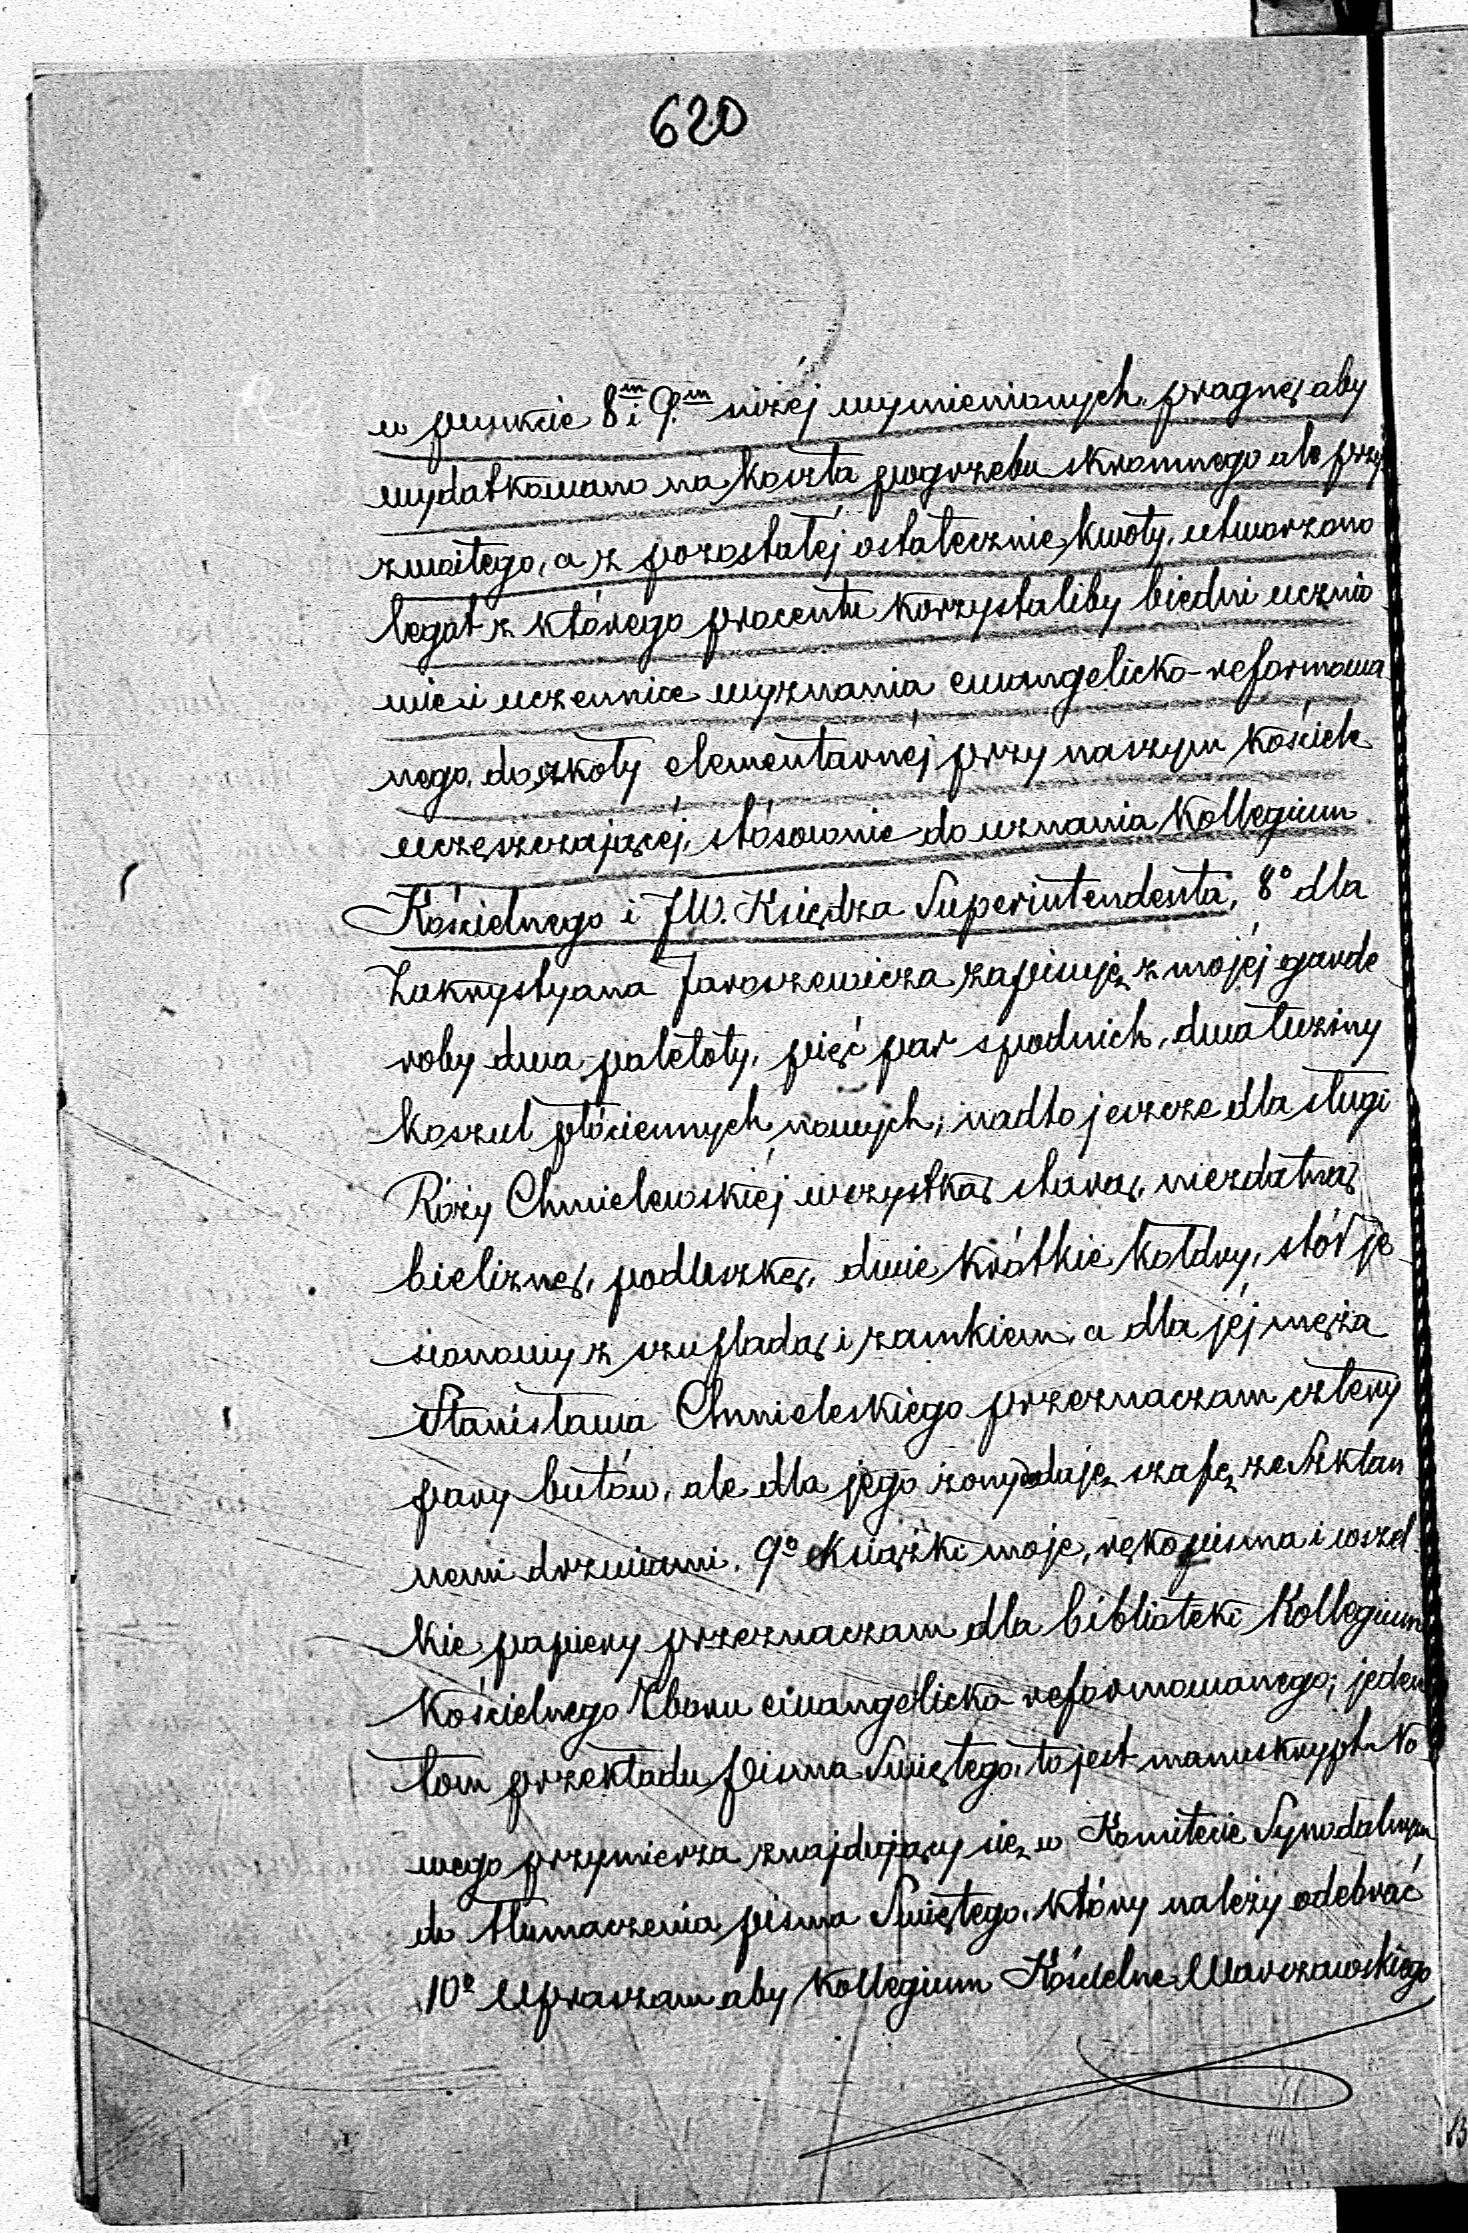 620
w punkcie 8m i 9.m niżéj wymienionych, pragnę, aby
wydatkowano na koszta pogrzebu skromnego ale przy
zwoitego, a z pozostałéj ostatecznie kwoty, utworzono
legat z którego procentu korzystaliby biedni ucznio
wie i uczennice wyznania ewangelicko-reformowa
nego, do szkoły elementarnéj przy naszym kościele
uczęszczającéj, stósownie do uznania Kollegium
Kościelnego i JW. Księdza Superintendenta, 8° dla
Zakrystyana Jaroszewicza zapisuję z mojéj garde
roby dwa paletoty, pięć par spodnich, dwa tuziny
koszul płóciennych nowych; nadto jeszcze dla sługi
Róży Chmielewskiéj wszystką starą, niezdatną
bieliznę, poduszkę, dwie krótkie kołdry, stół je
sionowy z szufladą i zamkiem, a dla jéj męża
Stanisława Chmieleskiego przeznaczam cztery
pary butów, ale dla jego żony dodaję szafę ze szklan
nemi drzwiami. 9° Książki moje, rękopisma i wszel
kie papiery przeznaczam dla biblioteki Kollegium
Kościelnego Zboru ewangelicko-reformowanego; jeden
tom przekładu Pisma Świętego, to jest manuskrypt No
wego przymierza znajdujący się w Komitecie Synodalnym
do tłumaczenia pisma Świętego, który należy odebrać
10° Upraszam aby Kollegium Kościelne Warszawskiego